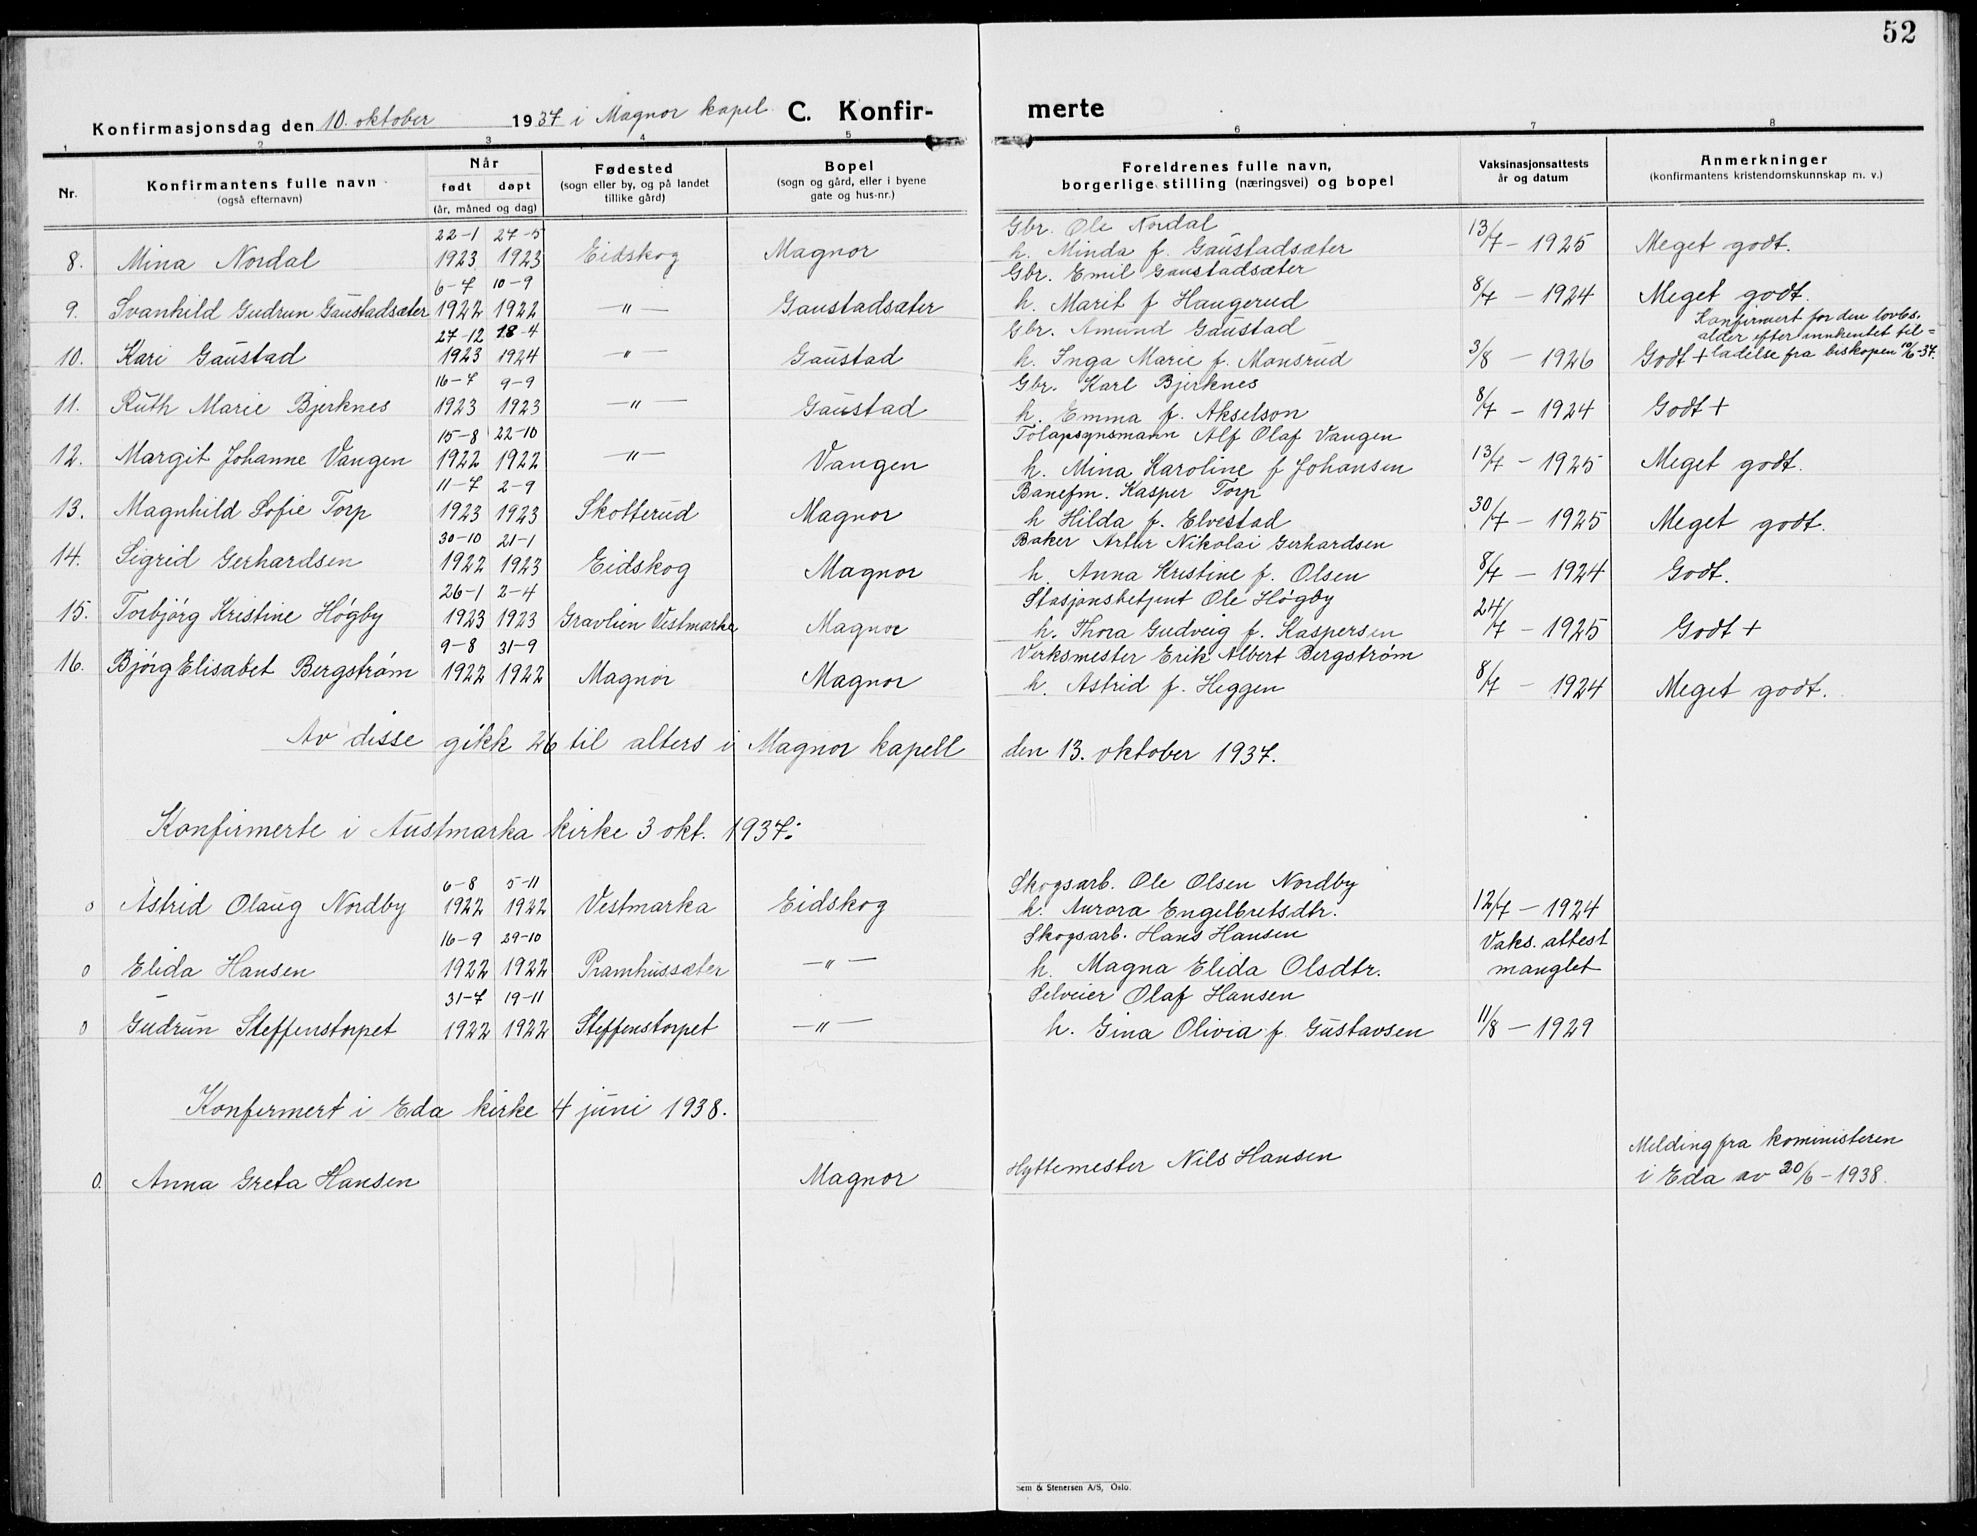 52
Konfirmasjonsdag den 10. oktober 1937 i Magnor kapel. C. Konfir- merte
1 2 3 4 5 6 7 8
Nr. Konfirmantens fulle navn (også efternavn) Når født døpt (år, måned og dag) Fødested (sogn eller by, og på landet tillike gård) Bopel (sogn og gård, eller i byene gate og hus-nr.) Foreldrenes fulle navn, borgerlige stilling (næringsvei) og bopel Vaksinasjonsattests år og datum Anmerkninger (konfirmantens kristendomskunnskap m. v.)
22-1 27-5 Gbr. Ole Nordal
8. Mina Nordal 1923 1923 Eidskog Magnor h. Minda f. Gaustadsæter 13/7 - 1925 Meget godt.
6-7 10-9 Gbr. Emil Gaustadsæter
9. Svanhild Gudrun Gaustadsæter 1922 1922 —"— Gaustadsæter h. Marit f Haugerud 8/7 - 1924 Meget godt.
27-12 18-4 Gbr. Amund Gaustad Konfirmert før den lovbs. alder efter innhentet til=
10. Kari Gaustad 1923 1924 —"— Gaustad h. Inga Marie f. Monsrud 3/8 - 1926 Godt + ladelse fra biskopen 10/6-37.
16-7 9-9 Gbr. Karl Bjerknes
11. Ruth Marie Bjerknes 1923 1923 —"— Gaustad h. Emma f. Akselson 8/7 - 1924 Godt +
15-8 22-10 Tolopsynsmann Alf Olaf Vangen
12. Margit Johanne Vangen 1922 1922 —"— Vangen h. Mina Karoline f Johansen 13/7 - 1925 Meget godt.
11-7 2-9 Banefm. Kasper Torp
13. Magnhild Sofie Torp 1923 1923 Skotterud Magnor h Hilda f. Elvestad 30/7 - 1925 Meget godt.
30-10 21-1 Baker Artur Nikolai Gerhardsen
14. Sigrid Gerhardsen 1922 1923 Eidskog Magnor h. Anna Kristine f. Olsen 8/7 - 1924 Godt.
26-1 2-4 Stasjonsbetjent Ole Høgby
15. Torbjørg Kristine Høgby 1923 1923 Gravlien Vestmarka Magnor h. Thora Gudveig f. Kaspersen 24/7 - 1925 Godt +
9-8 31-9 Verksmester Erik Albert Bergstrøm
16. Bjørg Elisabet Bergstrøm 1922 1922 Magnor Magnor h. Astrid f. Heggen 8/7 - 1924 Meget godt.
Av disse gikk 26 til alters i Magnor kapell den 13. oktober 1937.
Konfirmerte i Austmarka kirke 3 okt. 1937:
6-8 5-11 Skogsarb. Ole Olsen Nordby
0 Astrid Olaug Nordby 1922 1922 Vestmarka Eidskog h. Aurora Engelbretsdtr. 12/7 - 1924
16-9 29-10 Skogsarb. Hans Hansen Vaks. attest
0 Elida Hansen 1922 1922 Pramhussæter —"— h. Magna Elida Olsdtr. manglet
31-7 19-11 Selveier Olaf Hansen
0 Gudrun Steffenstorpet 1922 1922 Steffenstorpet —"— h. Gina Olivia f. Gustavsen 11/8 - 1929
Konfirmert i Eda kirke 4 juni 1938.
Melding fra kministeren
0. Anna Greta Hansen Magnor Hyttemester Nils Hansen i Eda av 20/6 - 1938.
Sem & Stenersen A/S, Oslo.